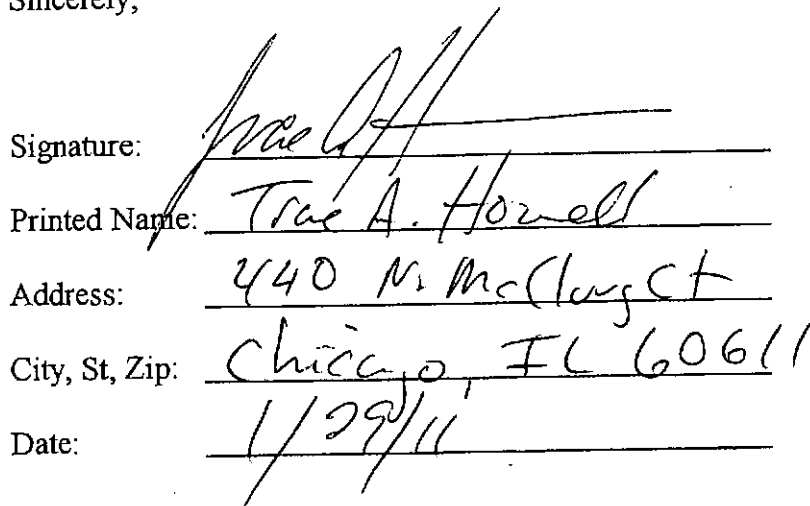 Sincerely,
Signature:
Printed Name: Trae A. Howell
Address: 440 N. McClurg Ct
City, St, Zip: Chicago, IL 60611
Date: 1/29/11